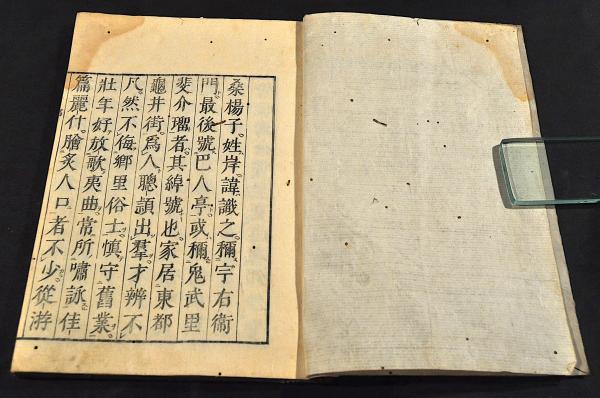 桑楊子姓岸諱識之稱宇右衞
門最後號巴人亭或稱鬼武里
斐介瑠者其綽號也家居東都
龜井街爲人聰頴出羣才辨不
凡然不侮鄉里俗士愼守舊業
壯年好放歌夷曲常所嘯詠佳
篇麗什膾炙人口者不少從游